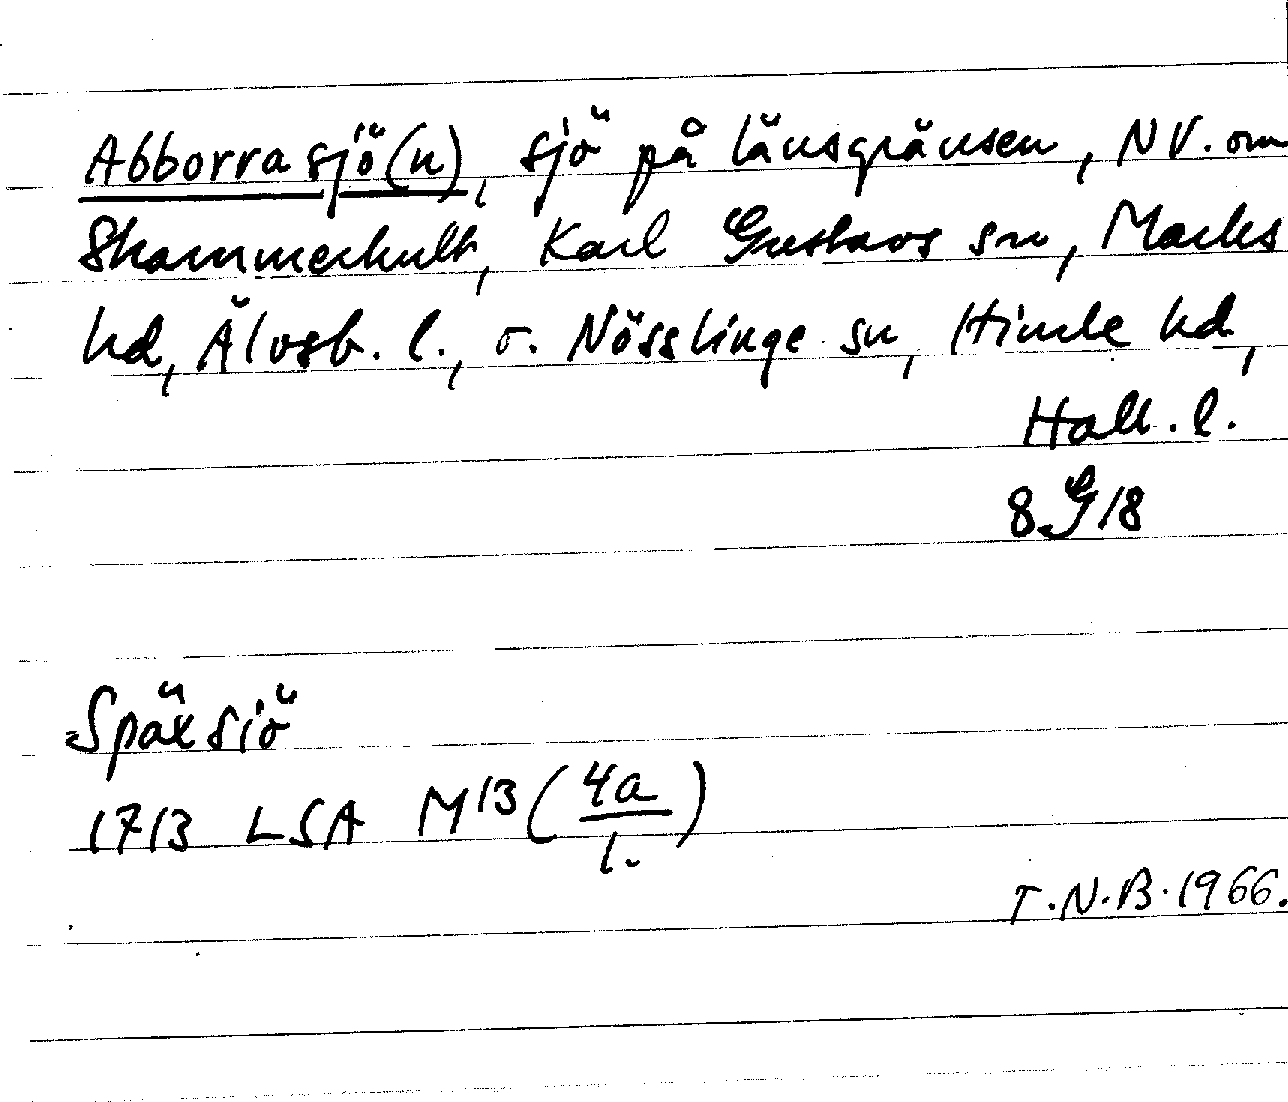 Abborrasjö(n), sjö på länsgränsen, NV. om
Skammerhult, Karl Gustavs sn, Marks
hd, Älvsb. l., o. Nösslinge sn, Himle hd,
Hall. l.
8 G 18
Späxsiö
1713 LSA M13 (4a/1.)
T.N.B. 1966.